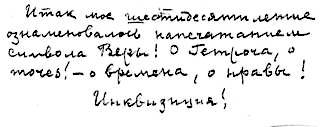 Итак мое шестидесятилетие
ознаменовалось напечатанием
символа Веры! О Петроча, о
точес! — о времена, о нравы!
Инквизиция!